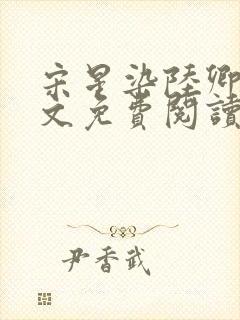 宋星染陸卿
文免費閱讀
尹香武